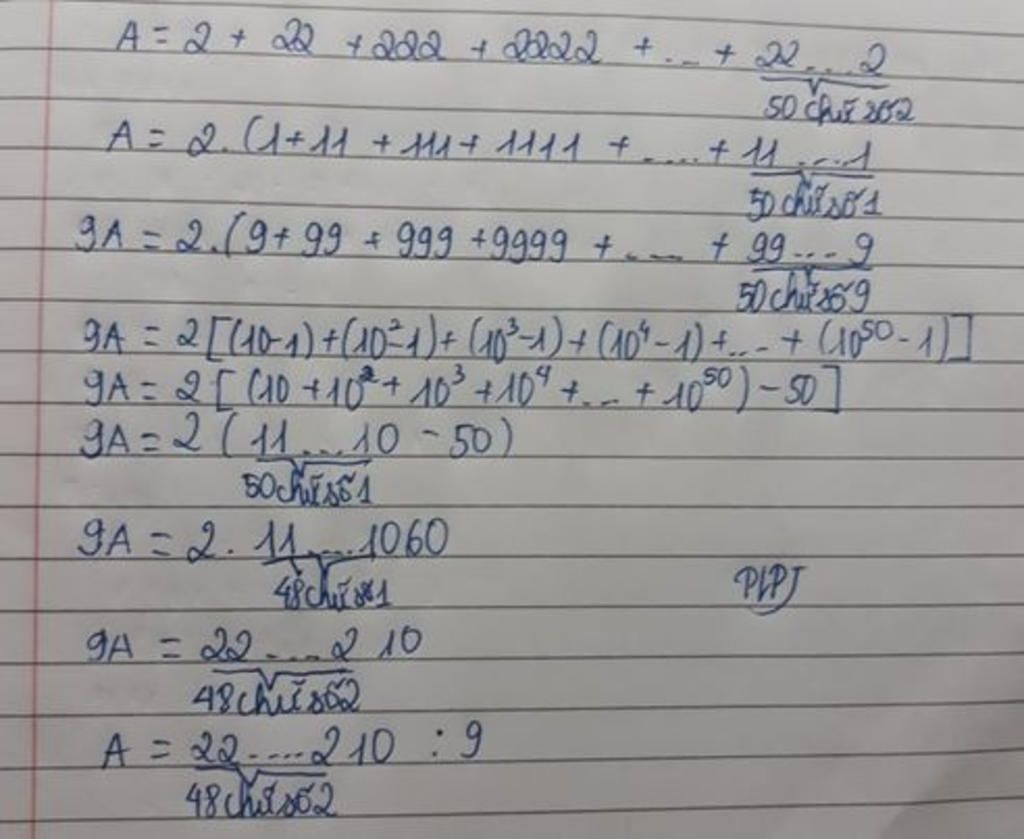 A = 2 + 22 + 222 + 2222 + ... + 22...2
50 chữ số 2
A = 2.(1+11 + 111 + 1111 + ..... + 11....1
50 chữ số 1
9A = 2.(9+ 99 + 999 +9999 + ..... + 99...9
50 chữ số 9
9A = 2[(10-1)+(10²-1)+(10³-1)+(10⁴-1)+...+(10⁵⁰-1)]
9A = 2[(10+10²+10³+10⁴+...+10⁵⁰)-50]
9A = 2(11...10 - 50)
50 chữ số 1
9A = 2. 11....1060
48 chữ số 1
PLPJ
9A = 22....2 10
48 chữ số 2
A = 22....2 10 : 9
48 chữ số 2